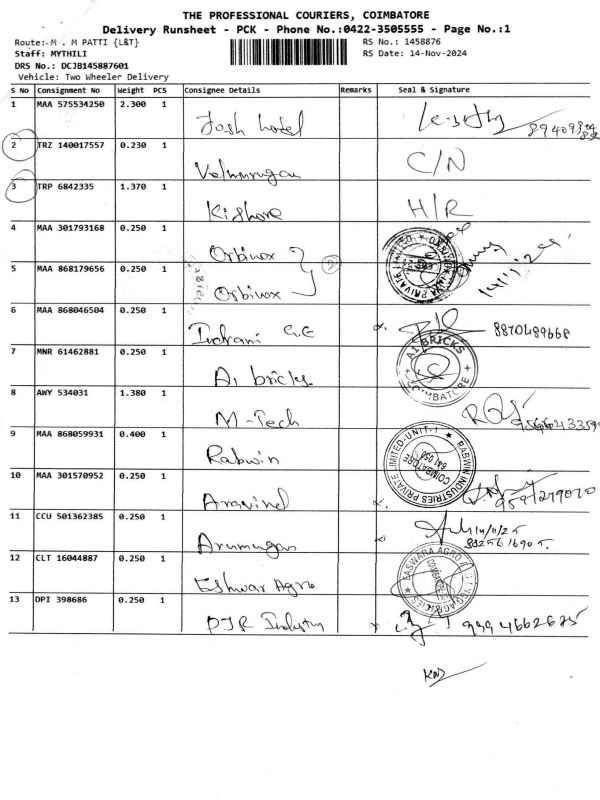 THE PROFESSIONAL COURIERS, COIMBATORE
Delivery Runsheet - PCK - Phone No.:0422-3505555 - Page No.:1
Route:-M . M PATTI {L&T}
RS No.: 1458876
Staff: MYTHILI
RS Date: 14-Nov-2024
DRS No.: DCJB145887601
Vehicle: Two Wheeler Delivery
S No Consignment No Weight PCS Consignee Details Remarks Seal & Signature
1 MAA 575534250 2.300 1 Josh hotel
2 TRZ 140017557 0.230 1 Velmurugan C/N
3 TRP 6842335 1.370 1 Kishore H/R
4 MAA 301793168 0.250 1 Orbinox
5 MAA 868179656 0.250 1 Orbinox
6 MAA 868046504 0.250 1 Indrani G.E 8870489668
7 MNR 61462881 0.250 1 A1 bricks A1 BRICKS COIMBATORE
8 AWY 534031 1.380 1 M-Tech
9 MAA 868059931 0.400 1 Rabwin RABWIN INDUSTRIES PRIVATE LIMITED-UNIT-1 COIMBATORE 641 050
10 MAA 301570952 0.250 1 Aravind
11 CCU 501362385 0.250 1 Arumugan
12 CLT 16044887 0.250 1 Eshwar Agro
13 DPI 398686 0.250 1 PJR Industry 9994662675